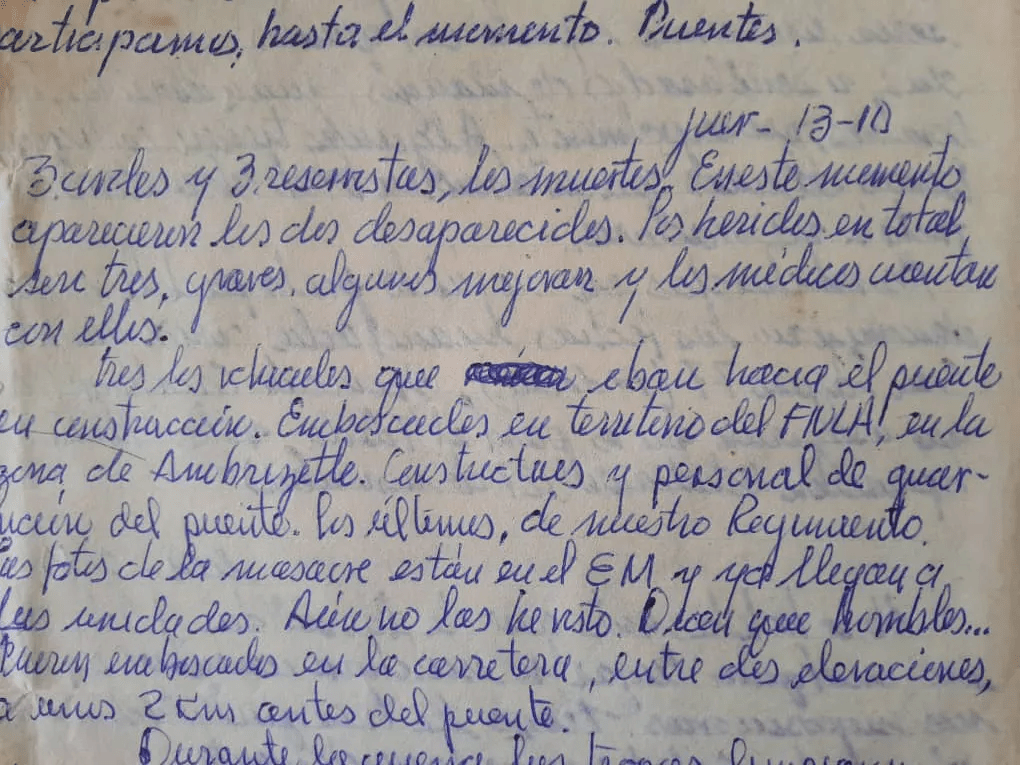 articipamos, hasta el momento. Puentes.
juev- 13-10
3 civiles y 3 reservistas, los muertos. En este momento
aparecieron los dos desaparecidos. Los heridos en total
son tres, graves, algunos mejoran y los médicos cuentan
con ellos.
Tres los vehículos que iban hacia el puente
en construcción. Emboscados en territorio del FNLA!, en la
zona de Ambrizette. Constructores y personal de guar-
nición del puente. Los últimos, de nuestro Regimiento.
Las fotos de la masacre están en el EM y ya llegan a
las unidades. Aún no las he visto. Dicen que horribles...
Fueron emboscados en la carretera, entre dos elevaciones,
a unos 2 Km antes del puente.
Durante la guerra las tropas